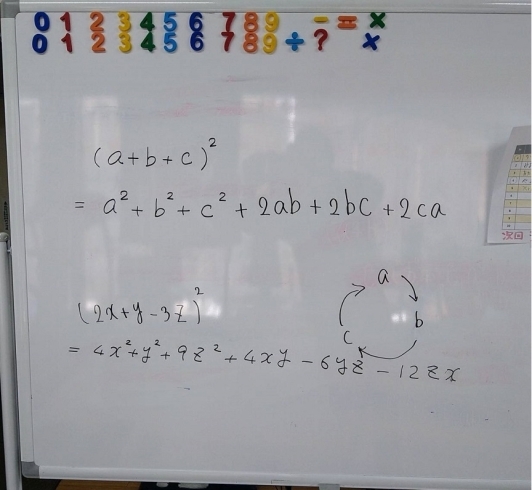 0 1 2 3 4 5 6 7 8 9 - = ×
0 1 2 3 4 5 6 7 8 9 ÷ ? ×
(a+b+c)²
= a² + b² + c² + 2ab + 2bc + 2ca
a
b
c
(2x+y-3z)²
= 4x²+y²+9z²+4xy-6yz-12zx
次回